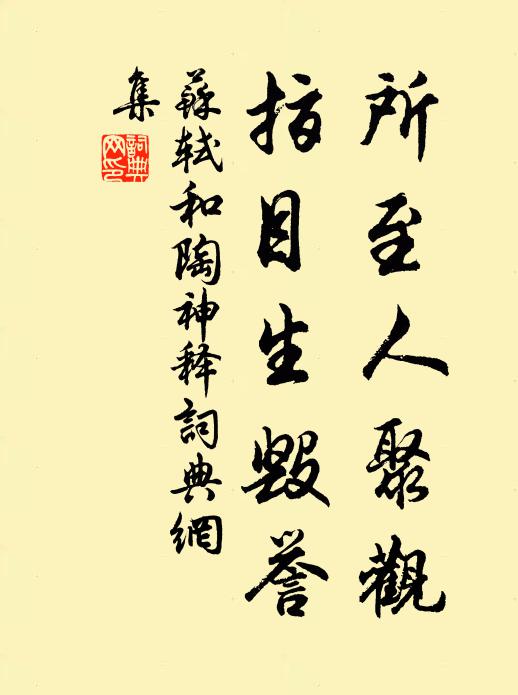 所至人聚觀
指目生毀譽
蘇軾和陶神释詞典網
集
詞典
网印